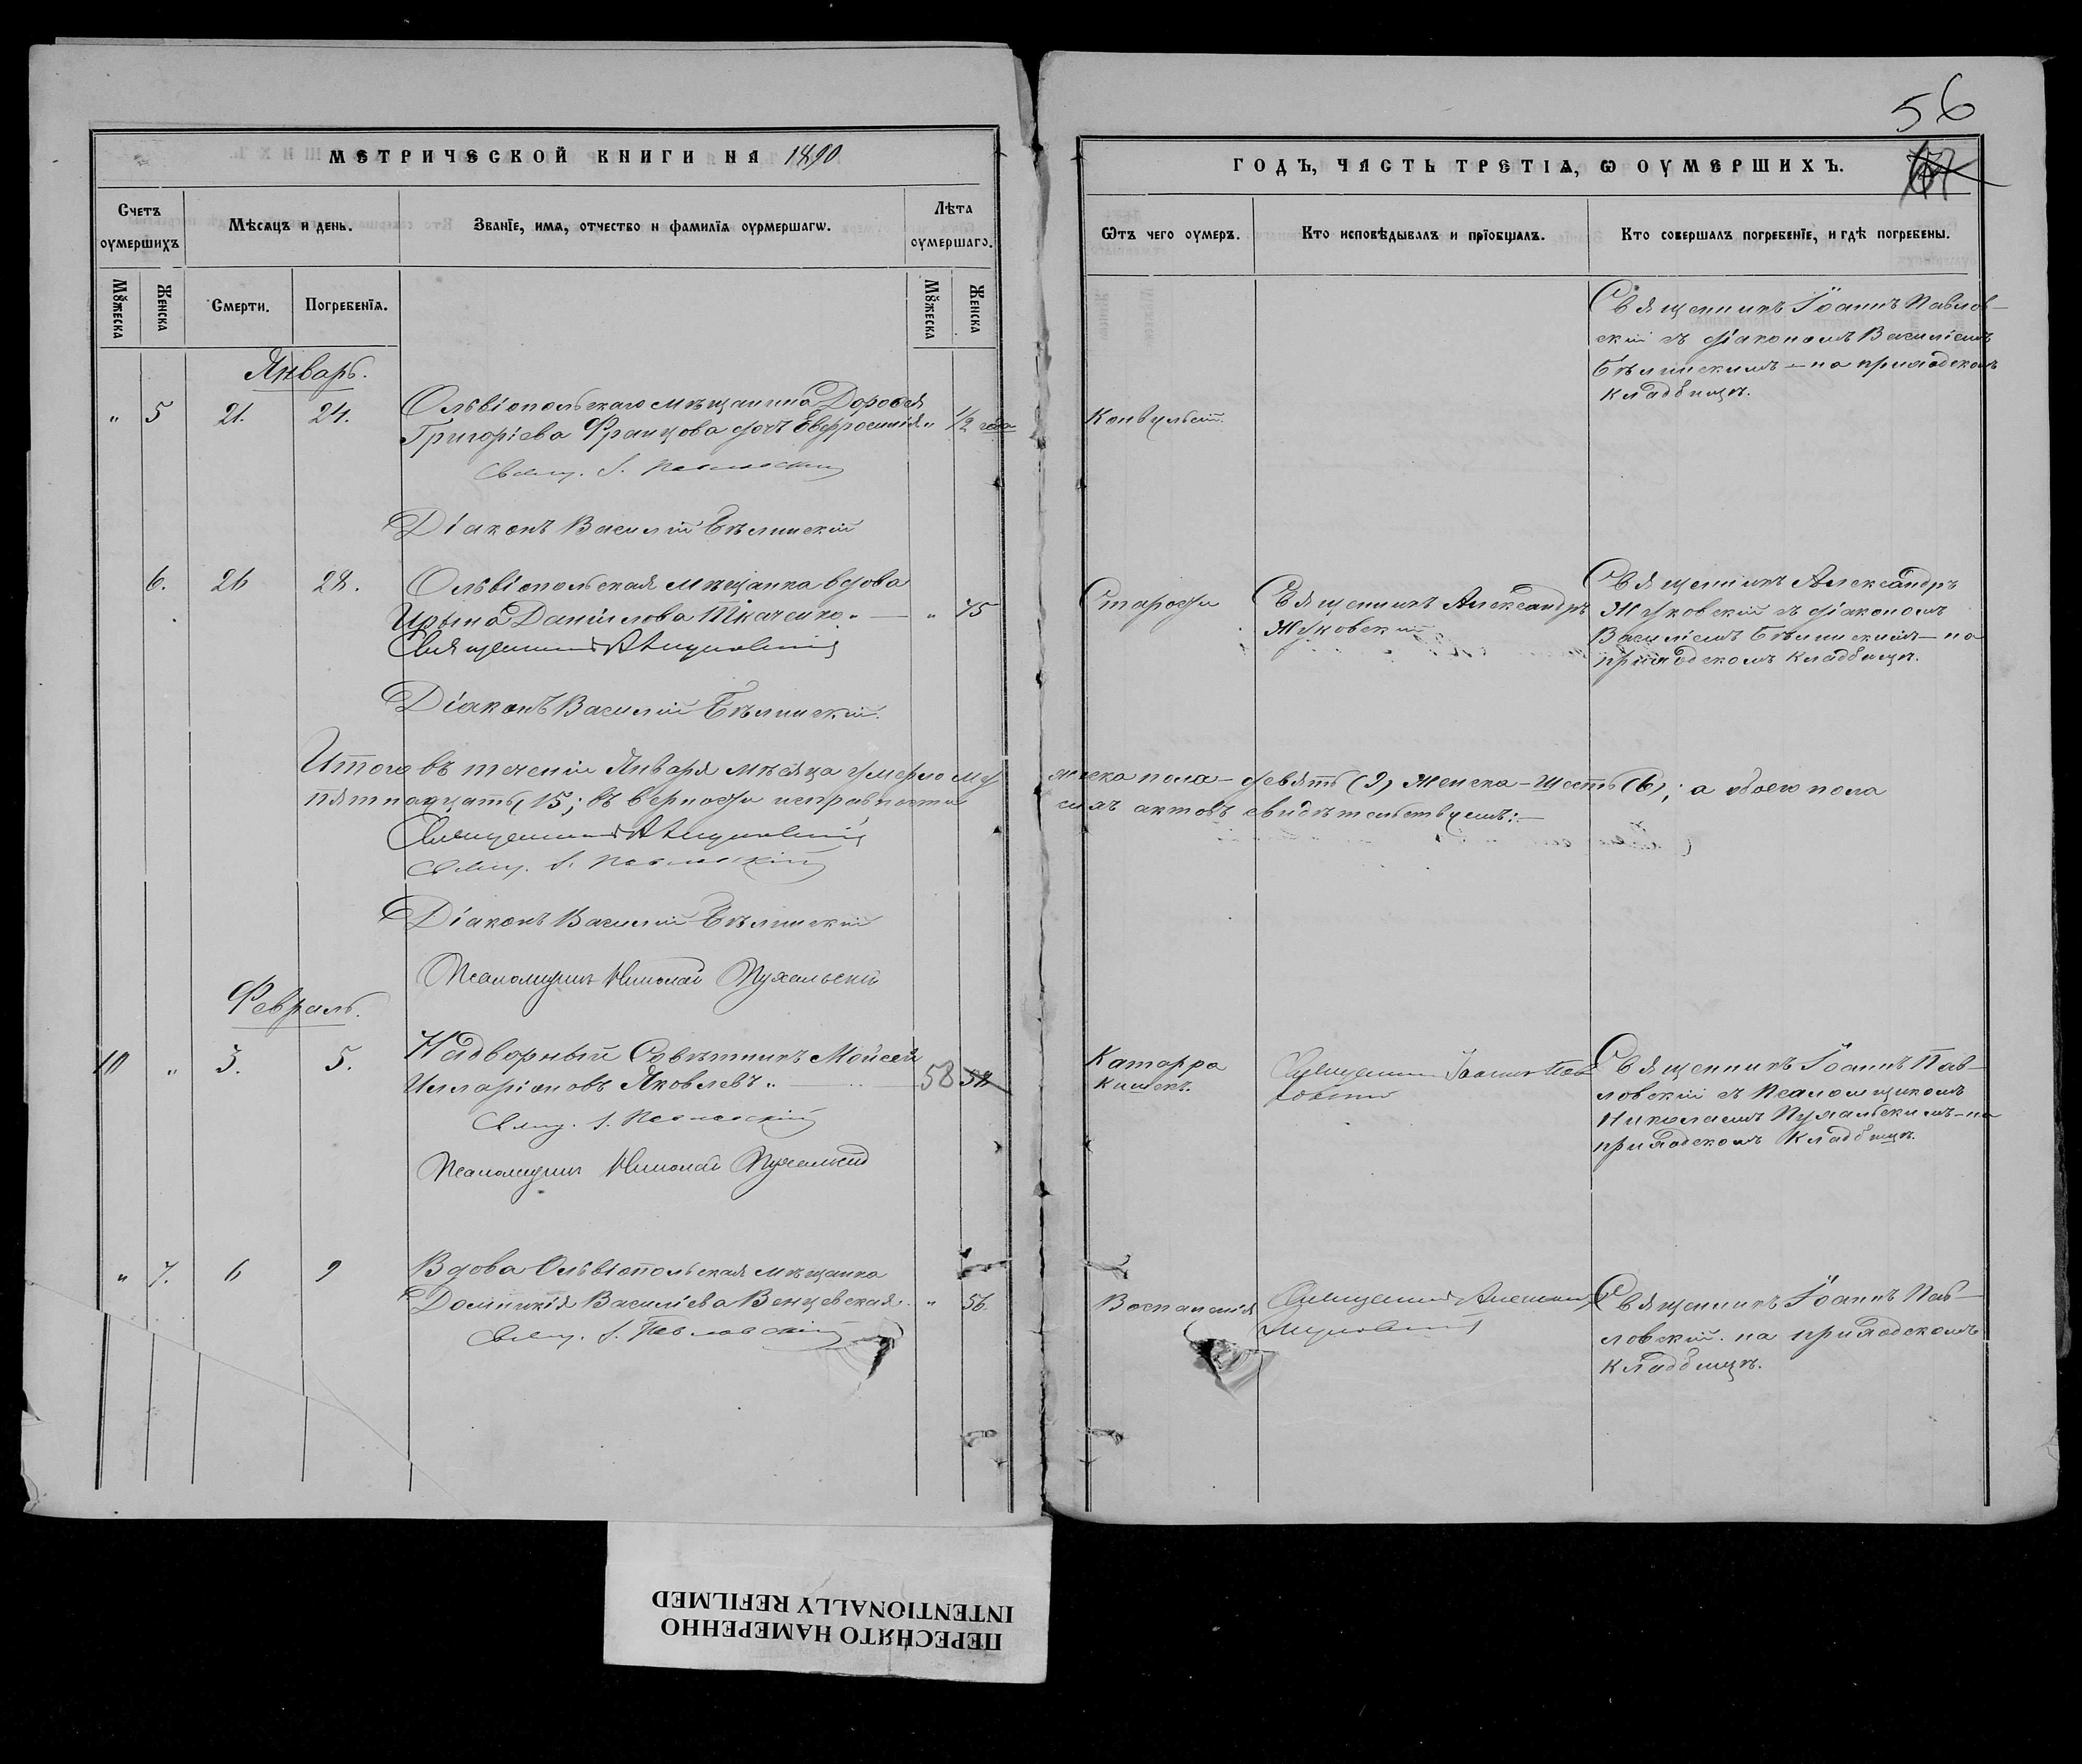 56
МЕТРИЧЕСКОЙ КНИГИ НА 1890
ГОДЪ, ЧАСТЬ ТРЕТІѦ, Ѡ ОУМЕРШИХЪ.
Счетъ оумершихъ
Мѣсѧцъ и день.
Званїе, имѧ, отчество и фамилїѧ оурмершагѡ.
Лѣта оумершаго.
Мꙋжеска
Женска
Смерти.
Погребенїѧ.
Мꙋжеска
Женска
Ѿтъ чего оумеръ.
Кто исповѣдывалъ и прїобщалъ.
Кто совершалъ погребенїе, и гдѣ погребены.
Январь.
" 5 21. 24. Ольвіопольскаго мѣщанина Дорофея
Григоріева Францова дочь Евфросинія " 1/2 года
Свящ. І. Павловскій
Діаконъ Василій Бѣлинскій
Конвульсій.
Священникъ Іоаннъ Павлов-
скій съ діакономъ Василіемъ
Бѣлинскимъ – на приходскомъ
кладбищѣ.
6. 26 28. Ольвіопольская мѣщанка вдова
Ирина Даніилова Ткаченко. — " 75
Священникъ А Жуковскій
Діаконъ Василій Бѣлинскій.
Старости
Священникъ Александръ
Жуковскій
Священникъ Александръ
Жуковскій съ діакономъ
Василіемъ Бѣлинскимъ – на
приходскомъ кладбищѣ.
Итого въ теченіи Января мѣсяца умерло му
жеска пола – девять (9) женска – шесть (6); а обоего пола
пятнадцать (15); въ вѣрности исправности
сихъ актовъ свидѣтельствуемъ: –
Священникъ А Жуковскій
Свящ. І. Павловскій
Діаконъ Василій Бѣлинскій
Псаломщикъ Николай Пухальскій
Февраль.
10 " 3. 5. Надворный Совѣтникъ Мойсей
Илларіоновъ Яковлевъ. 58
Свящ. І. Павловскій
Псаломщикъ Николай Пухальскій
Катарра
кишекъ.
Священникъ Іоаннъ Пав
ловскій
Священникъ Іоаннъ Пав-
ловскій съ Псаломщикомъ
Николаемъ Пухальскимъ – на
приходскомъ кладбищѣ.
" 7. 6 9 Вдова Ольвіопольская мѣщанка
Домникія Василіева Венцевская. " 56.
Свящ. І. Павловскій
Воспаленія
Священникъ
Жуковскій
Священникъ Іоаннъ Пав-
ловскій. на приходскомъ
кладбищѣ.
ПЕРЕСНЯТО НАМЕРЕННО
INTENTIONALLY REFILMED